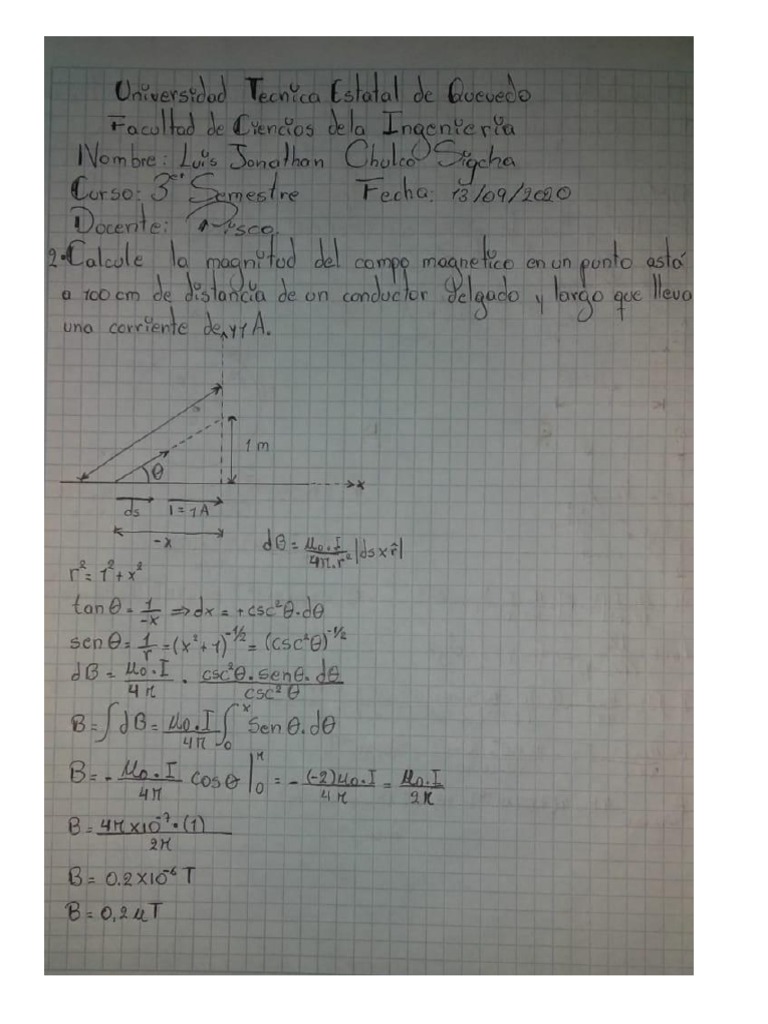 Universidad Tecnica Estatal de Quevedo
Facultad de Ciencias de la Ingenieria
Nombre: Luis Jonathan Chulco Sigcha
Curso: 3er Semestre Fecha: 13/09/2020
Docente: Pisco.
2. Calcule la magnitud del campo magnetico en un punto astá
a 100 cm de distancia de un conductor delgado y largo que lleva
una corriente de 1 A.
1 m
θ
x
ds I = 1A
-x
dB = μ₀.I/4π.r² |ds x r̂|
r² = 1² + x²
tanθ = 1/-x ⇒ dx = +csc²θ.dθ
senθ = 1/r = (x²+1)^-1/2 = (csc²θ)^-1/2
dB = μ₀.I/4π . csc²θ.senθ.dθ/csc²θ
B = ∫dB = μ₀.I/4π ∫₀^π senθ.dθ
B = - μ₀.I/4π cosθ |₀^π = - (-2)μ₀.I/4π = μ₀.I/2π
B = 4π x 10⁻⁷ . (1)/2π
B = 0.2 x 10⁻⁶ T
B = 0,2 μT